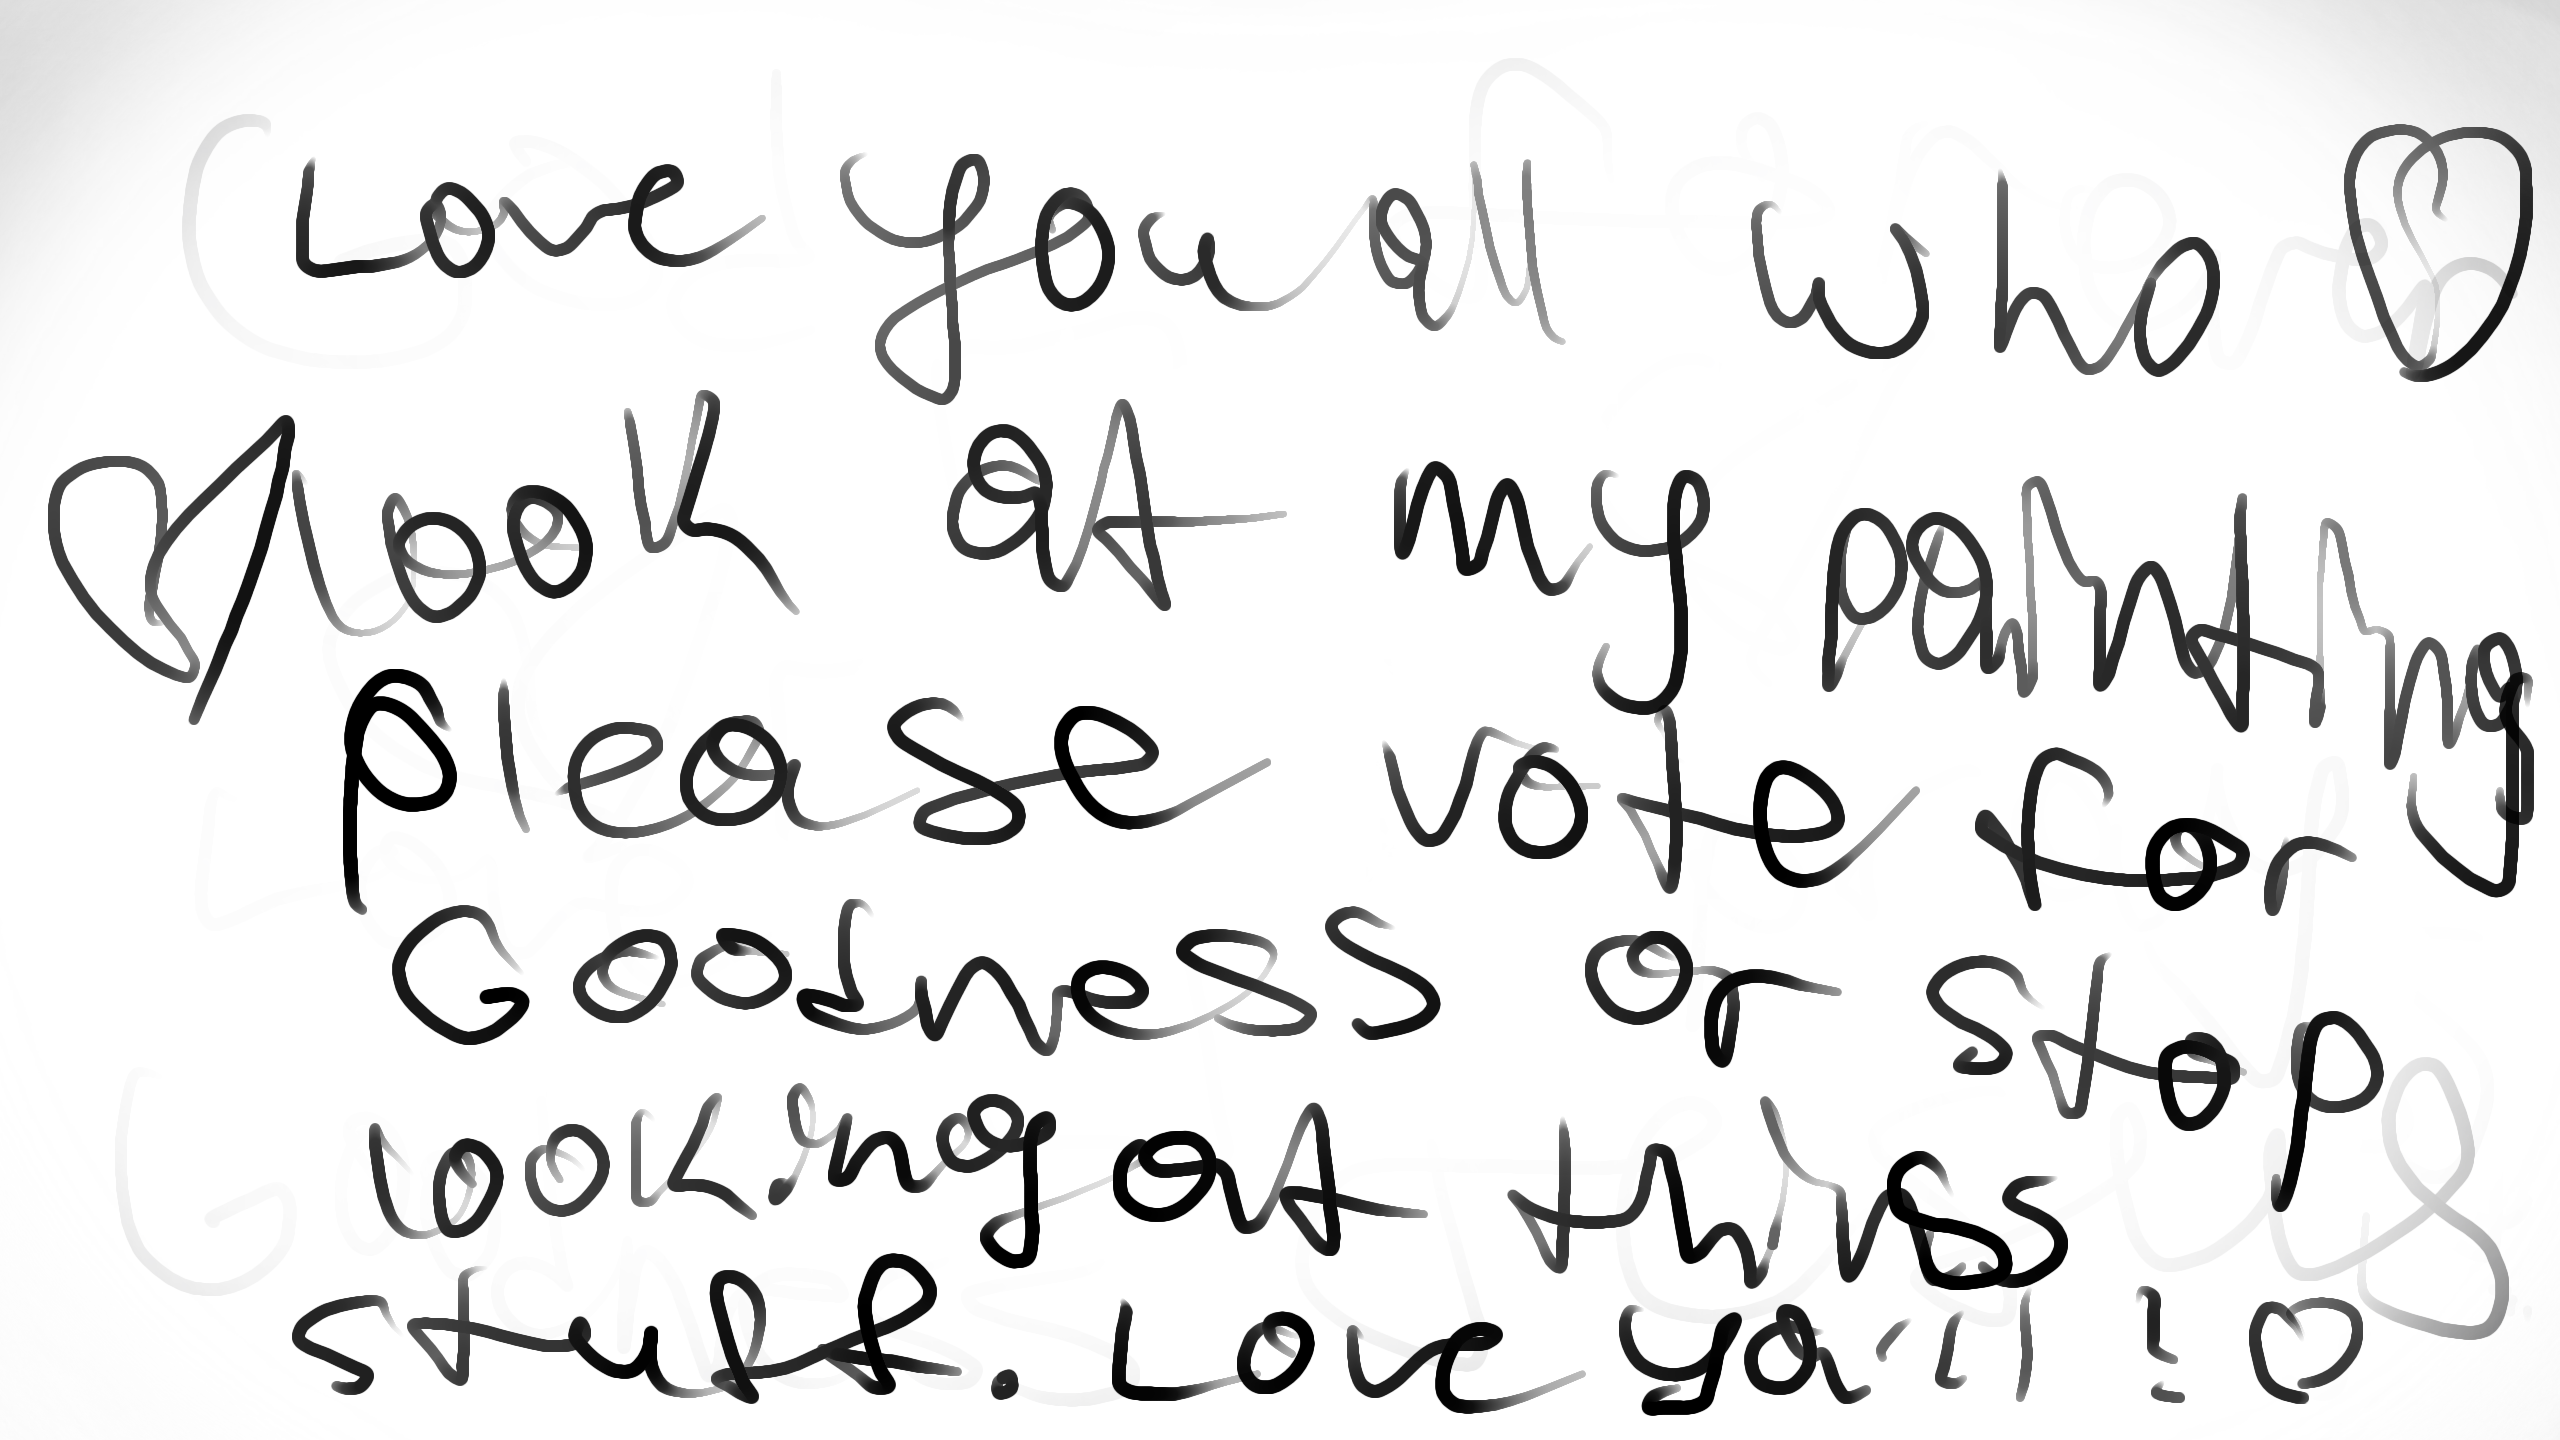 Love you all who ♡
♡ look at my painting
please vote for
Goodness or stop
looking at this
stuff. Love ya'll! ♡